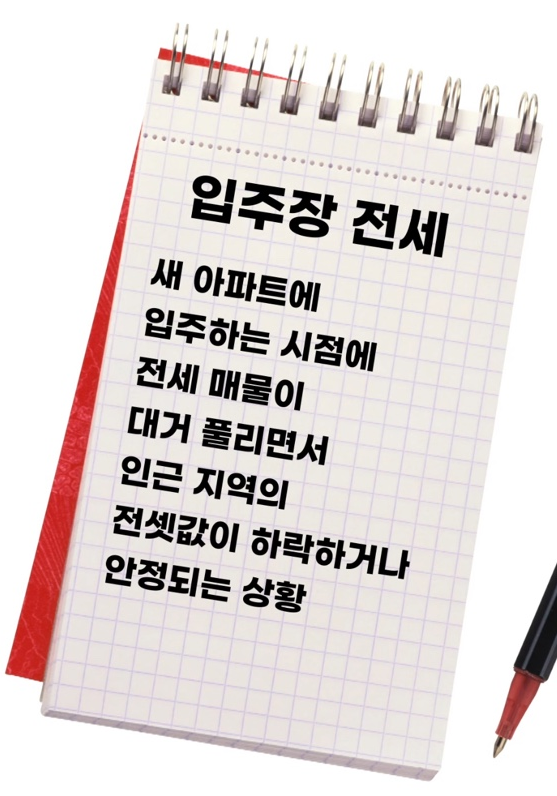 입주장 전세
새 아파트에
입주하는 시점에
전세 매물이
대거 풀리면서
인근 지역의
전셋값이 하락하거나
안정되는 상황